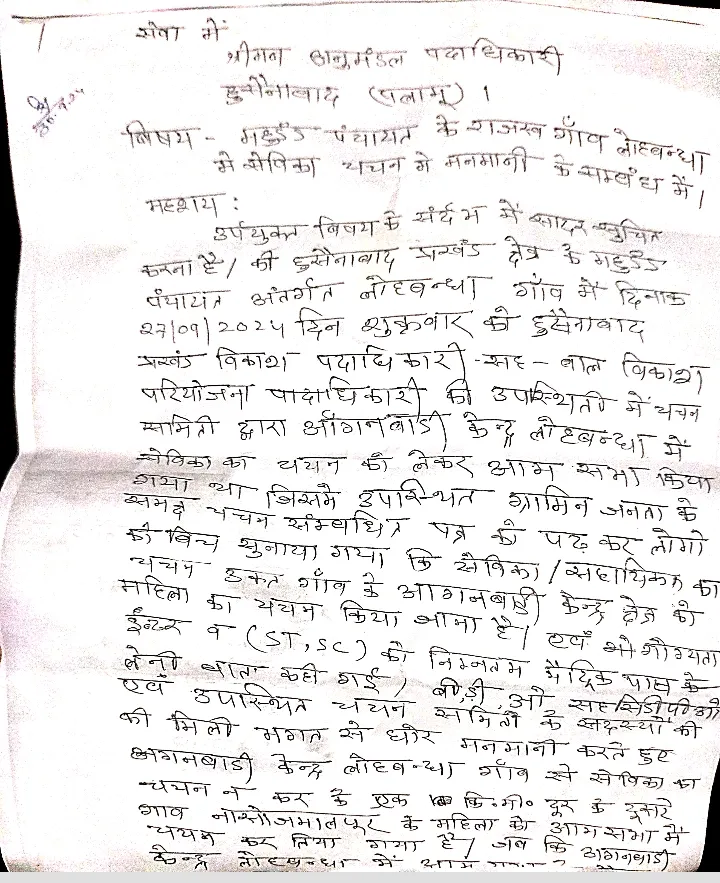 सेवा में
श्रीमान अनुमंडल पदाधिकारी
हुसैनाबाद (पलामू) ।
विषय - महुडंड पंचायत के राजस्व गाँव लोहबन्धा
मे सेविका चयन मे मनमानी के सम्बंध में।
महाशय :
उर्पयुक्त विषय के संर्दभ में सादर सुचित
करना है/ की हुसैनाबाद प्रखंड क्षेत्र के महुडंड
पंचायत अंतर्गत लोहबन्धा गाँव में दिनाक
27/09/2024 दिन शुक्रवार को हुसैनाबाद
प्रखंड विकाश पदाधिकारी-सह-बाल विकाश
परियोजना पादाधिकारी की उपस्थिती में चयन
समिती द्वारा आँगनबाडी केन्द्र लोहबन्धा में
सेविका का चयन को लेकर आम सभा किया
गया था जिसमे उपस्थित ग्रामिन जनता के
समक्ष चयन संम्बधित पत्र को पढ़ कर लोगो
को बिच सुनाया गया कि सेविका/सहायिका का
चयन उक्त गाँव के आगनबाड़ी केन्द्र क्षेत्र को
महिला का चयन किया जाना है/ एवं भी योग्यता
ईन्टर व (ST,SC) को निम्नतम मैट्रिक पास के
लेनी बाता कही गई/ बी.डी.ओ सह सिडीपीओ
एवं उपस्थित चयन समिती के सदस्यों की
की मिली भगत से घोर मनमानी करते हुए
आगनबाडी केन्द्र लोहबन्धा गाँव से सेविका का
चयन न कर के एक कि॰मी॰ दूर के दूसरे
गाव नासोजमालपूर के महिला को आमसभा में
चयन कर लिया गया है/ जब कि आगनबाडी
केन्द्र लोहबन्धा में आम